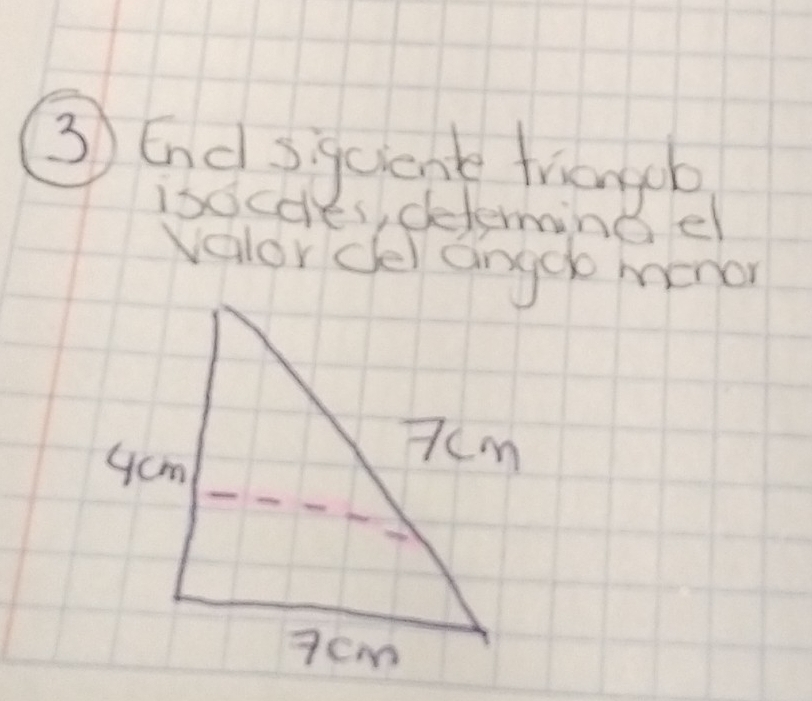 3 En el siguiente triangulo
isóceles, determina el
valor del ángulo menor
7cm
4cm
7cm